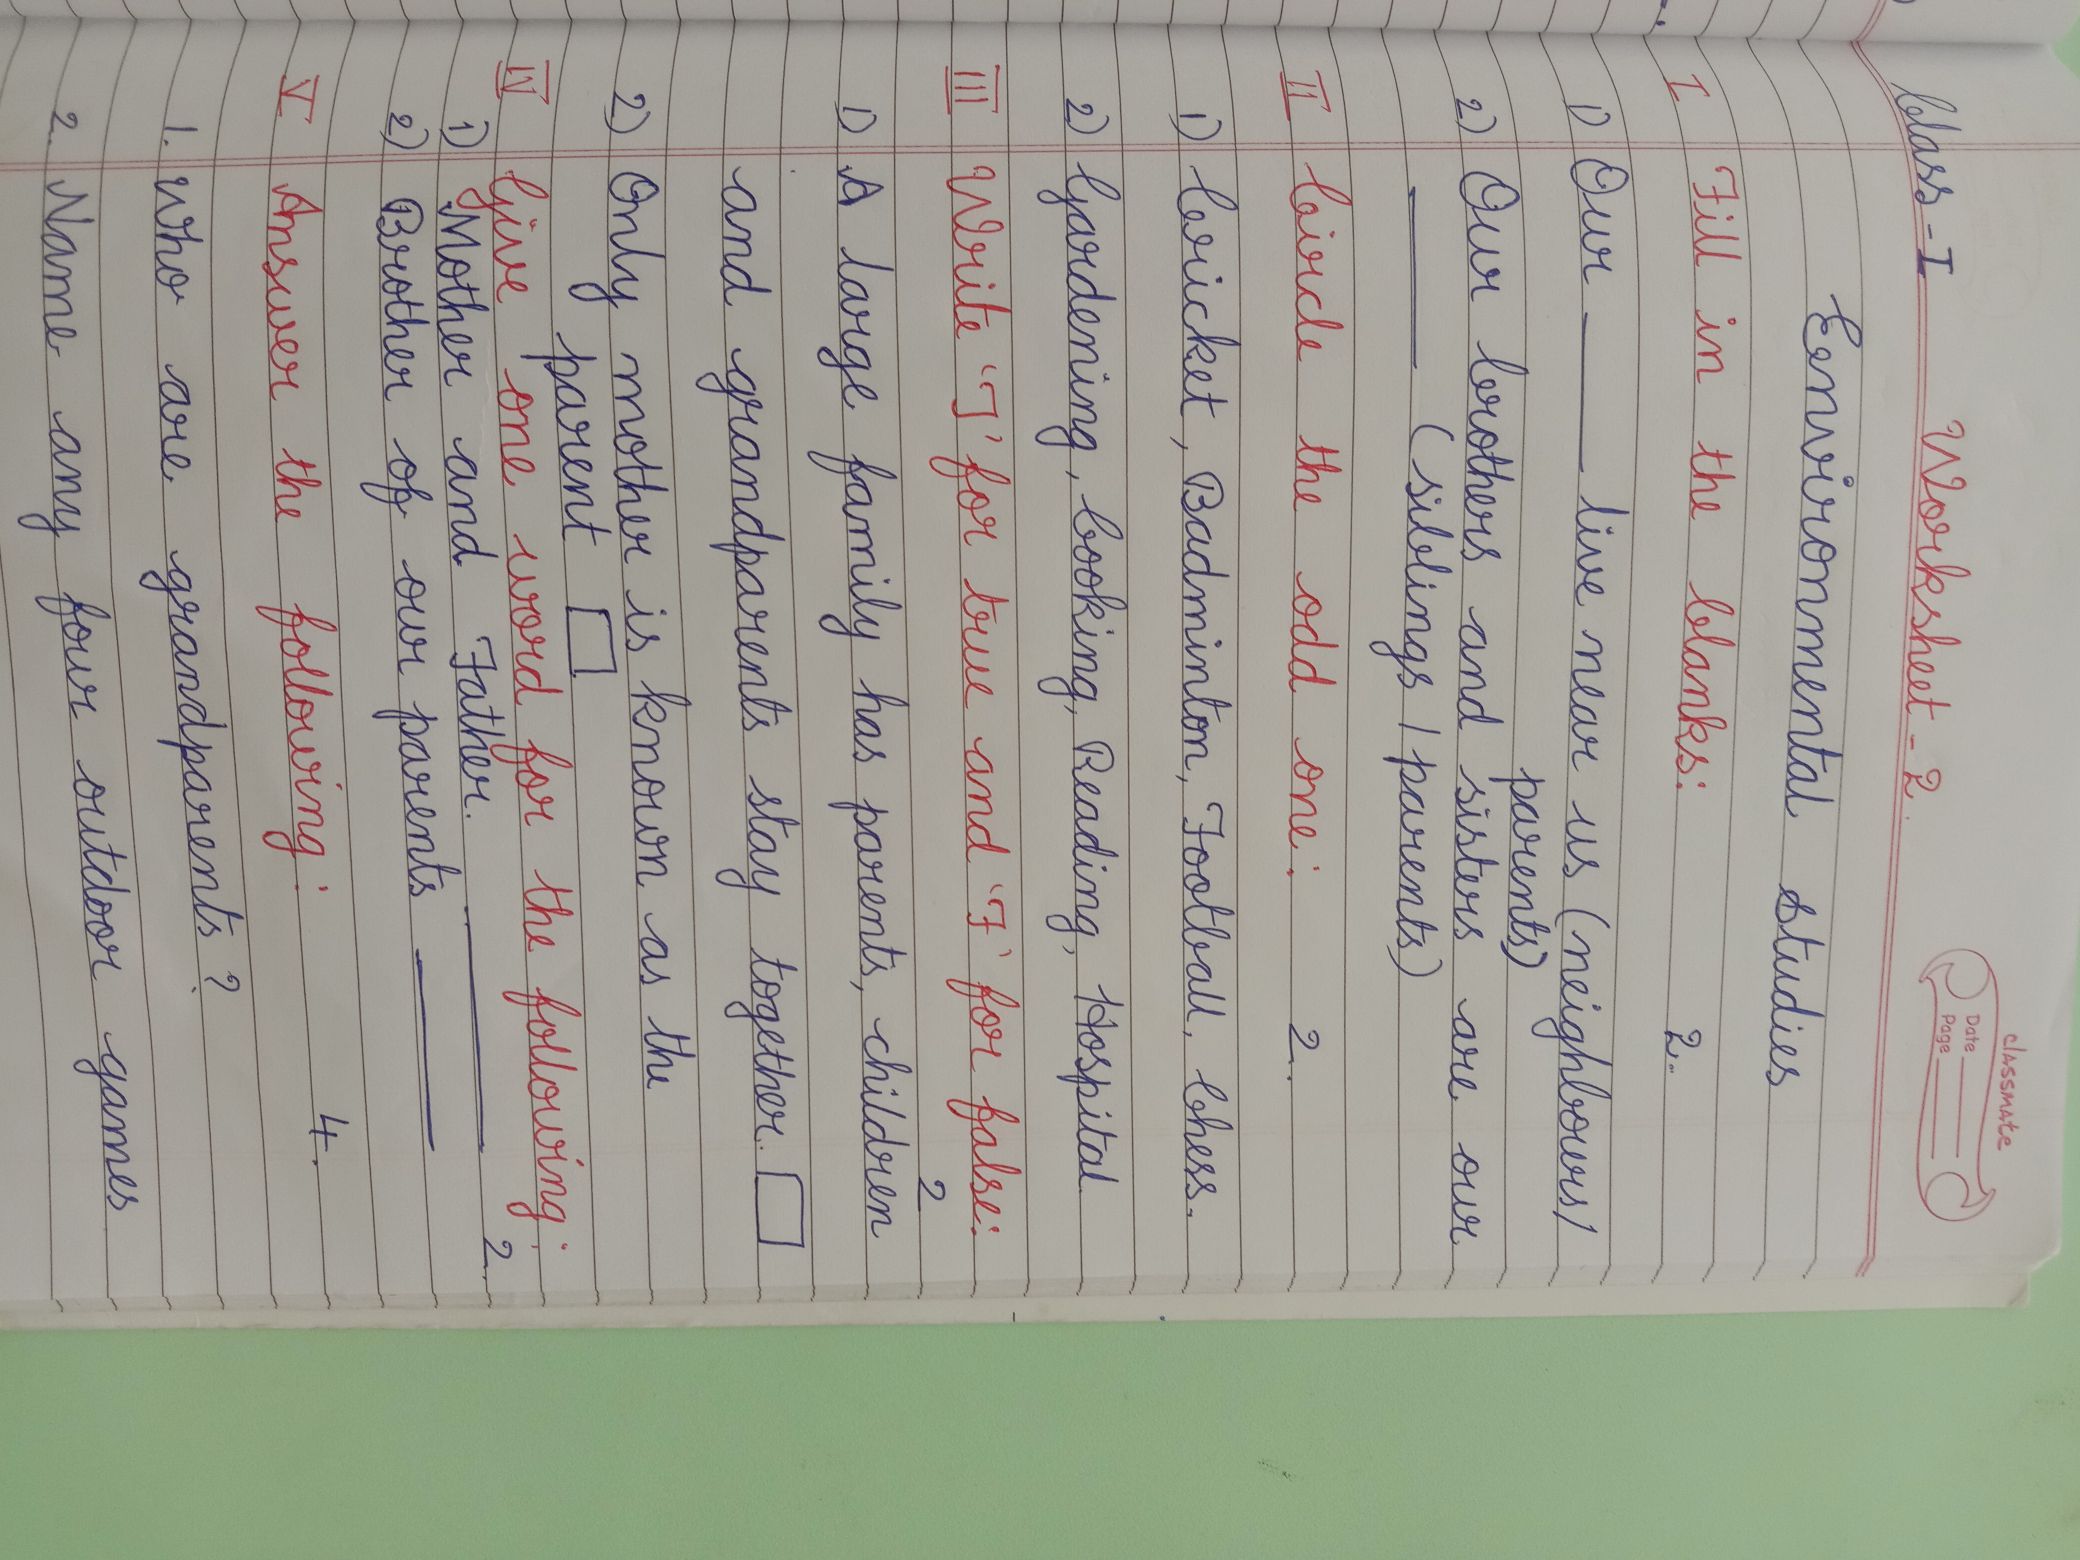 classmate
Date
Page
Class - I Worksheet - 2.
Environmental studies
I Fill in the blanks: 2.
1) Our ____ live near us (neighbours/
parents)
2) Our brothers and sisters are our
____ (siblings / parents)
II Circle the odd one: 2.
1) Cricket, Badminton, Football, Chess.
2) Gardening, Cooking, Reading, Hospital
III Write 'T' for true and 'F' for false:
2
1) A large family has parents, children
and grandparents stay together. □
2) Only mother is known as the
parent □
IV Give one word for the following:
1) Mother and Father. ____ 2.
2) Brother of our parents ____
V Answer the following: 4.
1. Who are grandparents?
2. Name any four outdoor games